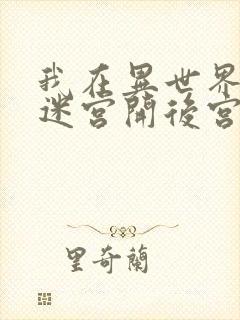 我在異世界
迷宮開後宮
里奇蘭